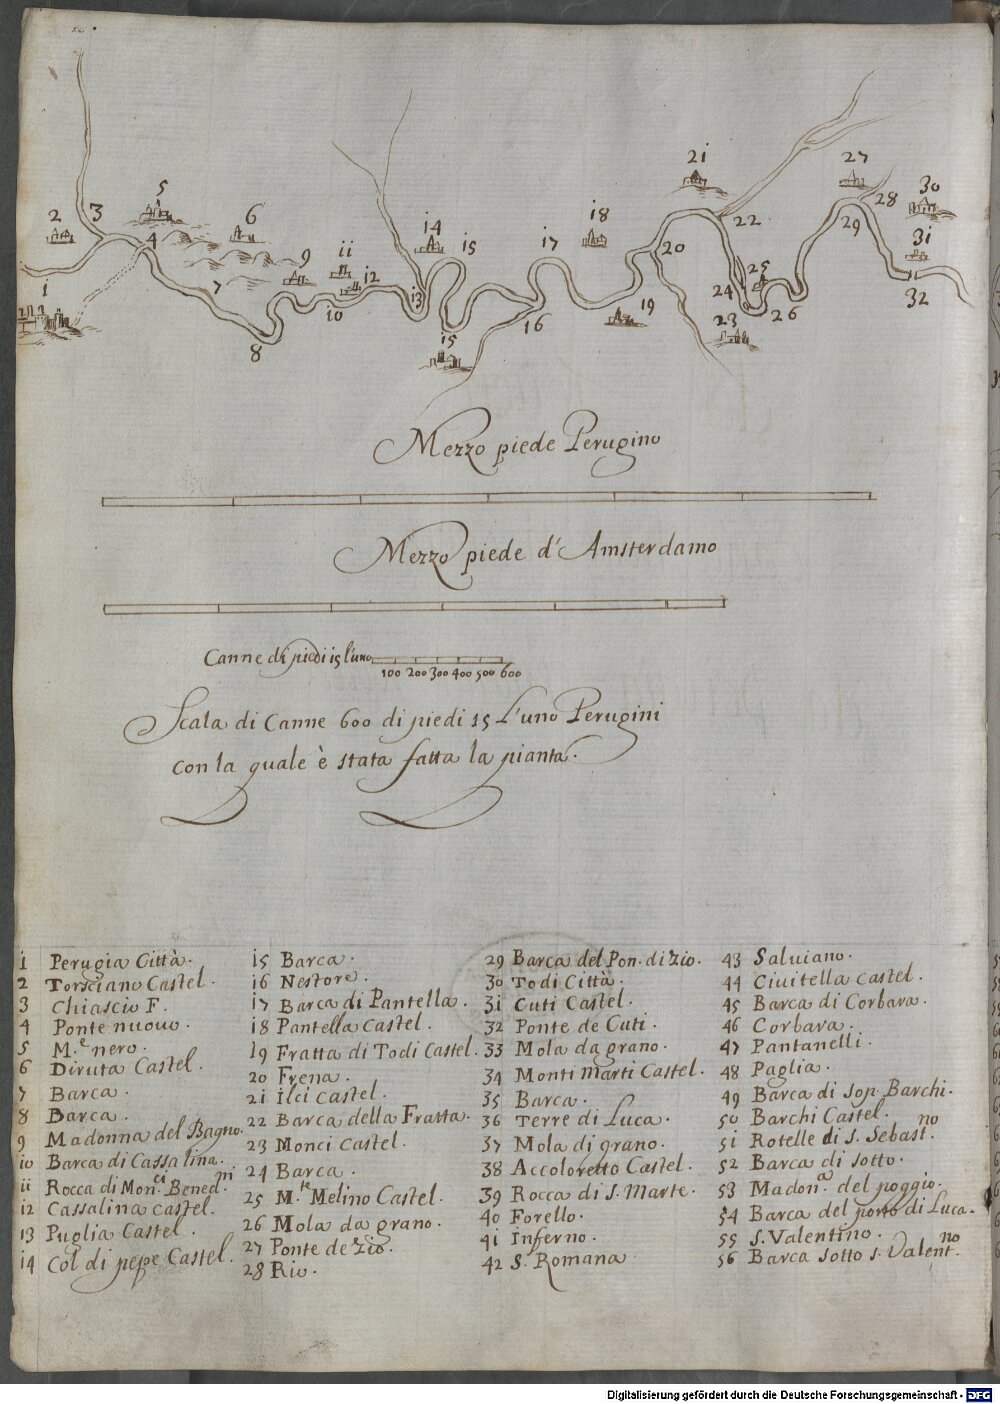 2
3
5
6
4
1
7
8
9
ii
i2
10
i3
i4
i5
i5
i6
i7
i8
19
20
2i
22
23
24
25
26
27
28
29
30
3i
32
Mezzo piede Perugino
Mezzo piede d' Amsterdamo
Canne di piedi i5 l'uno
100 200 300 400 500 600
Scala di Canne 600 di piedi 15 L'uno Perugini
con la quale è stata fatta la pianta.
i Perugia Città.
2 Torsciano Castel.
3 Chiascio F.
4 Ponte nuouo.
5 M.e nero.
6 Diruta Castel.
7 Barca.
8 Barca.
9 Madonna del Bagno.
io Barca di Cassalina.
ii Rocca di Mon.ci Bened.ni
i2 Cassalina castel.
i3 Puglia Castel.
i4 Col di pepe Castel.
i5 Barca.
i6 Nestore.
i7 Barca di Pantella.
i8 Pantella Castel.
i9 Fratta di Todi Castel.
20 Frena.
2i Ilci castel.
22 Barca della Fratta.
23 Monci castel.
24 Barca.
25 M.te Melino Castel.
26 Mola da grano.
27 Ponte de Zio.
28 Rio.
29 Barca del Pon. di Zio.
30 Todi Città.
3i Cuti Castel.
32 Ponte de Cuti.
33 Mola da grano.
34 Monti Marti Castel.
35 Barca.
36 Terre di Luca.
37 Mola di grano.
38 Accoloretto Castel.
39 Rocca di S. Marte.
40 Forello.
4i Inferno.
42 S. Romana
43 Saluiano.
44 Ciuitella castel.
45 Barca di Corbara.
46 Corbara.
47 Pantanelli.
48 Paglia.
49 Barca di sop. Barchi.
50 Barchi Castel.
5i Rotelle di S. Sebast.no
52 Barca di sotto.
53 Madon.a del poggio.
54 Barca del porto di Luca.
55 S. Valentino.
56 Barca sotto S. Valent.no
Digitalisierung gefördert durch die Deutsche Forschungsgemeinschaft - DFG